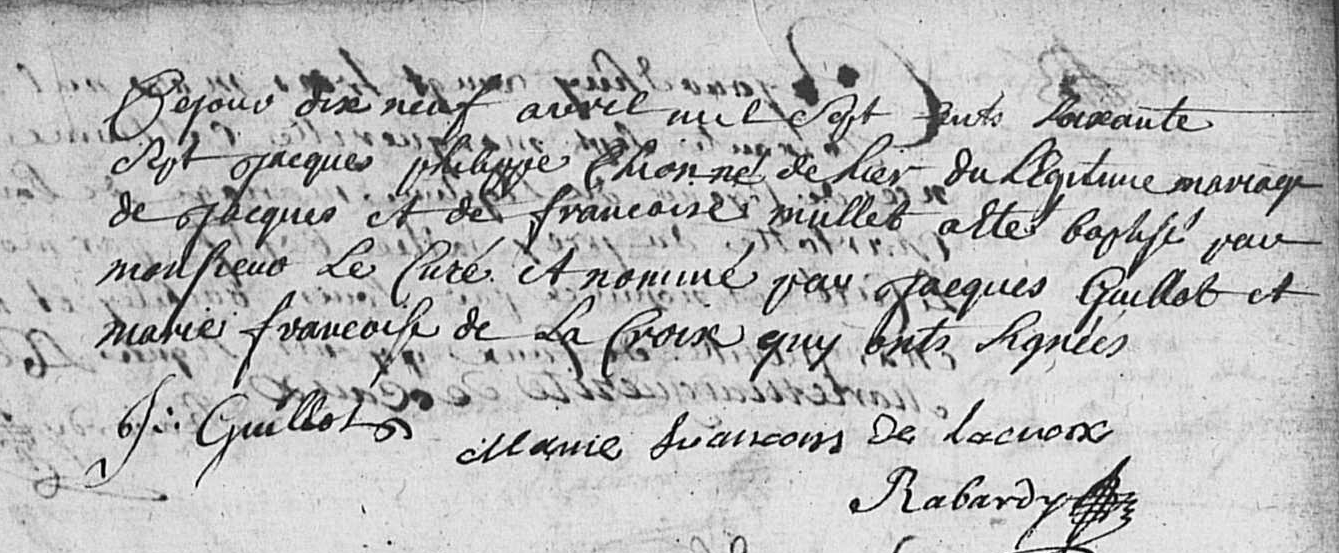 Cejour dix neuf avvril mil Sept cents Soixante
Sept jacques philippe Thionné de hier du Légitime mariage
de jacques et de francoise mullet atte baptisé par
monsieur Le Curé et nommé par jacques Guillot et
marie francoise de La Croix quy onts Signées
Guillot
Marie francois de Lacroix
Rabardy